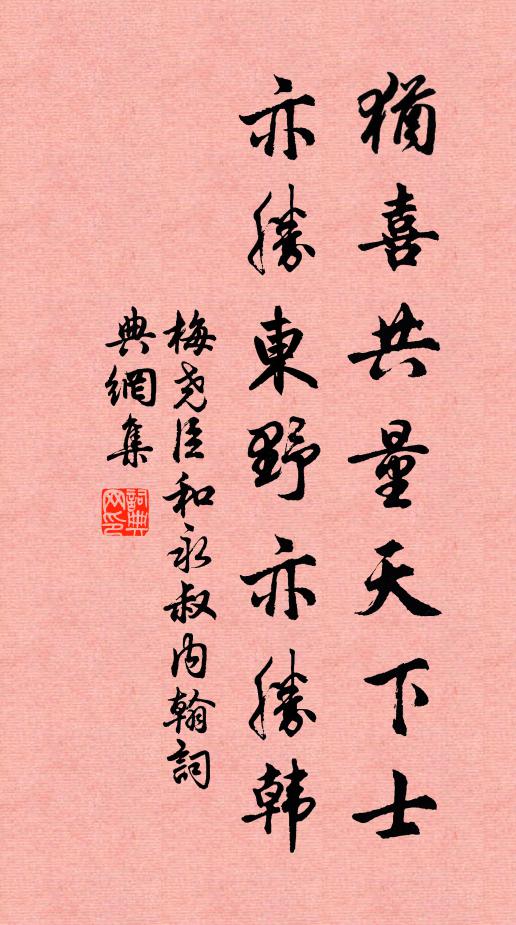 猶喜共量天下士
亦勝東野亦勝韓
梅堯臣和永叔内翰詞
典網集
詞典
网印